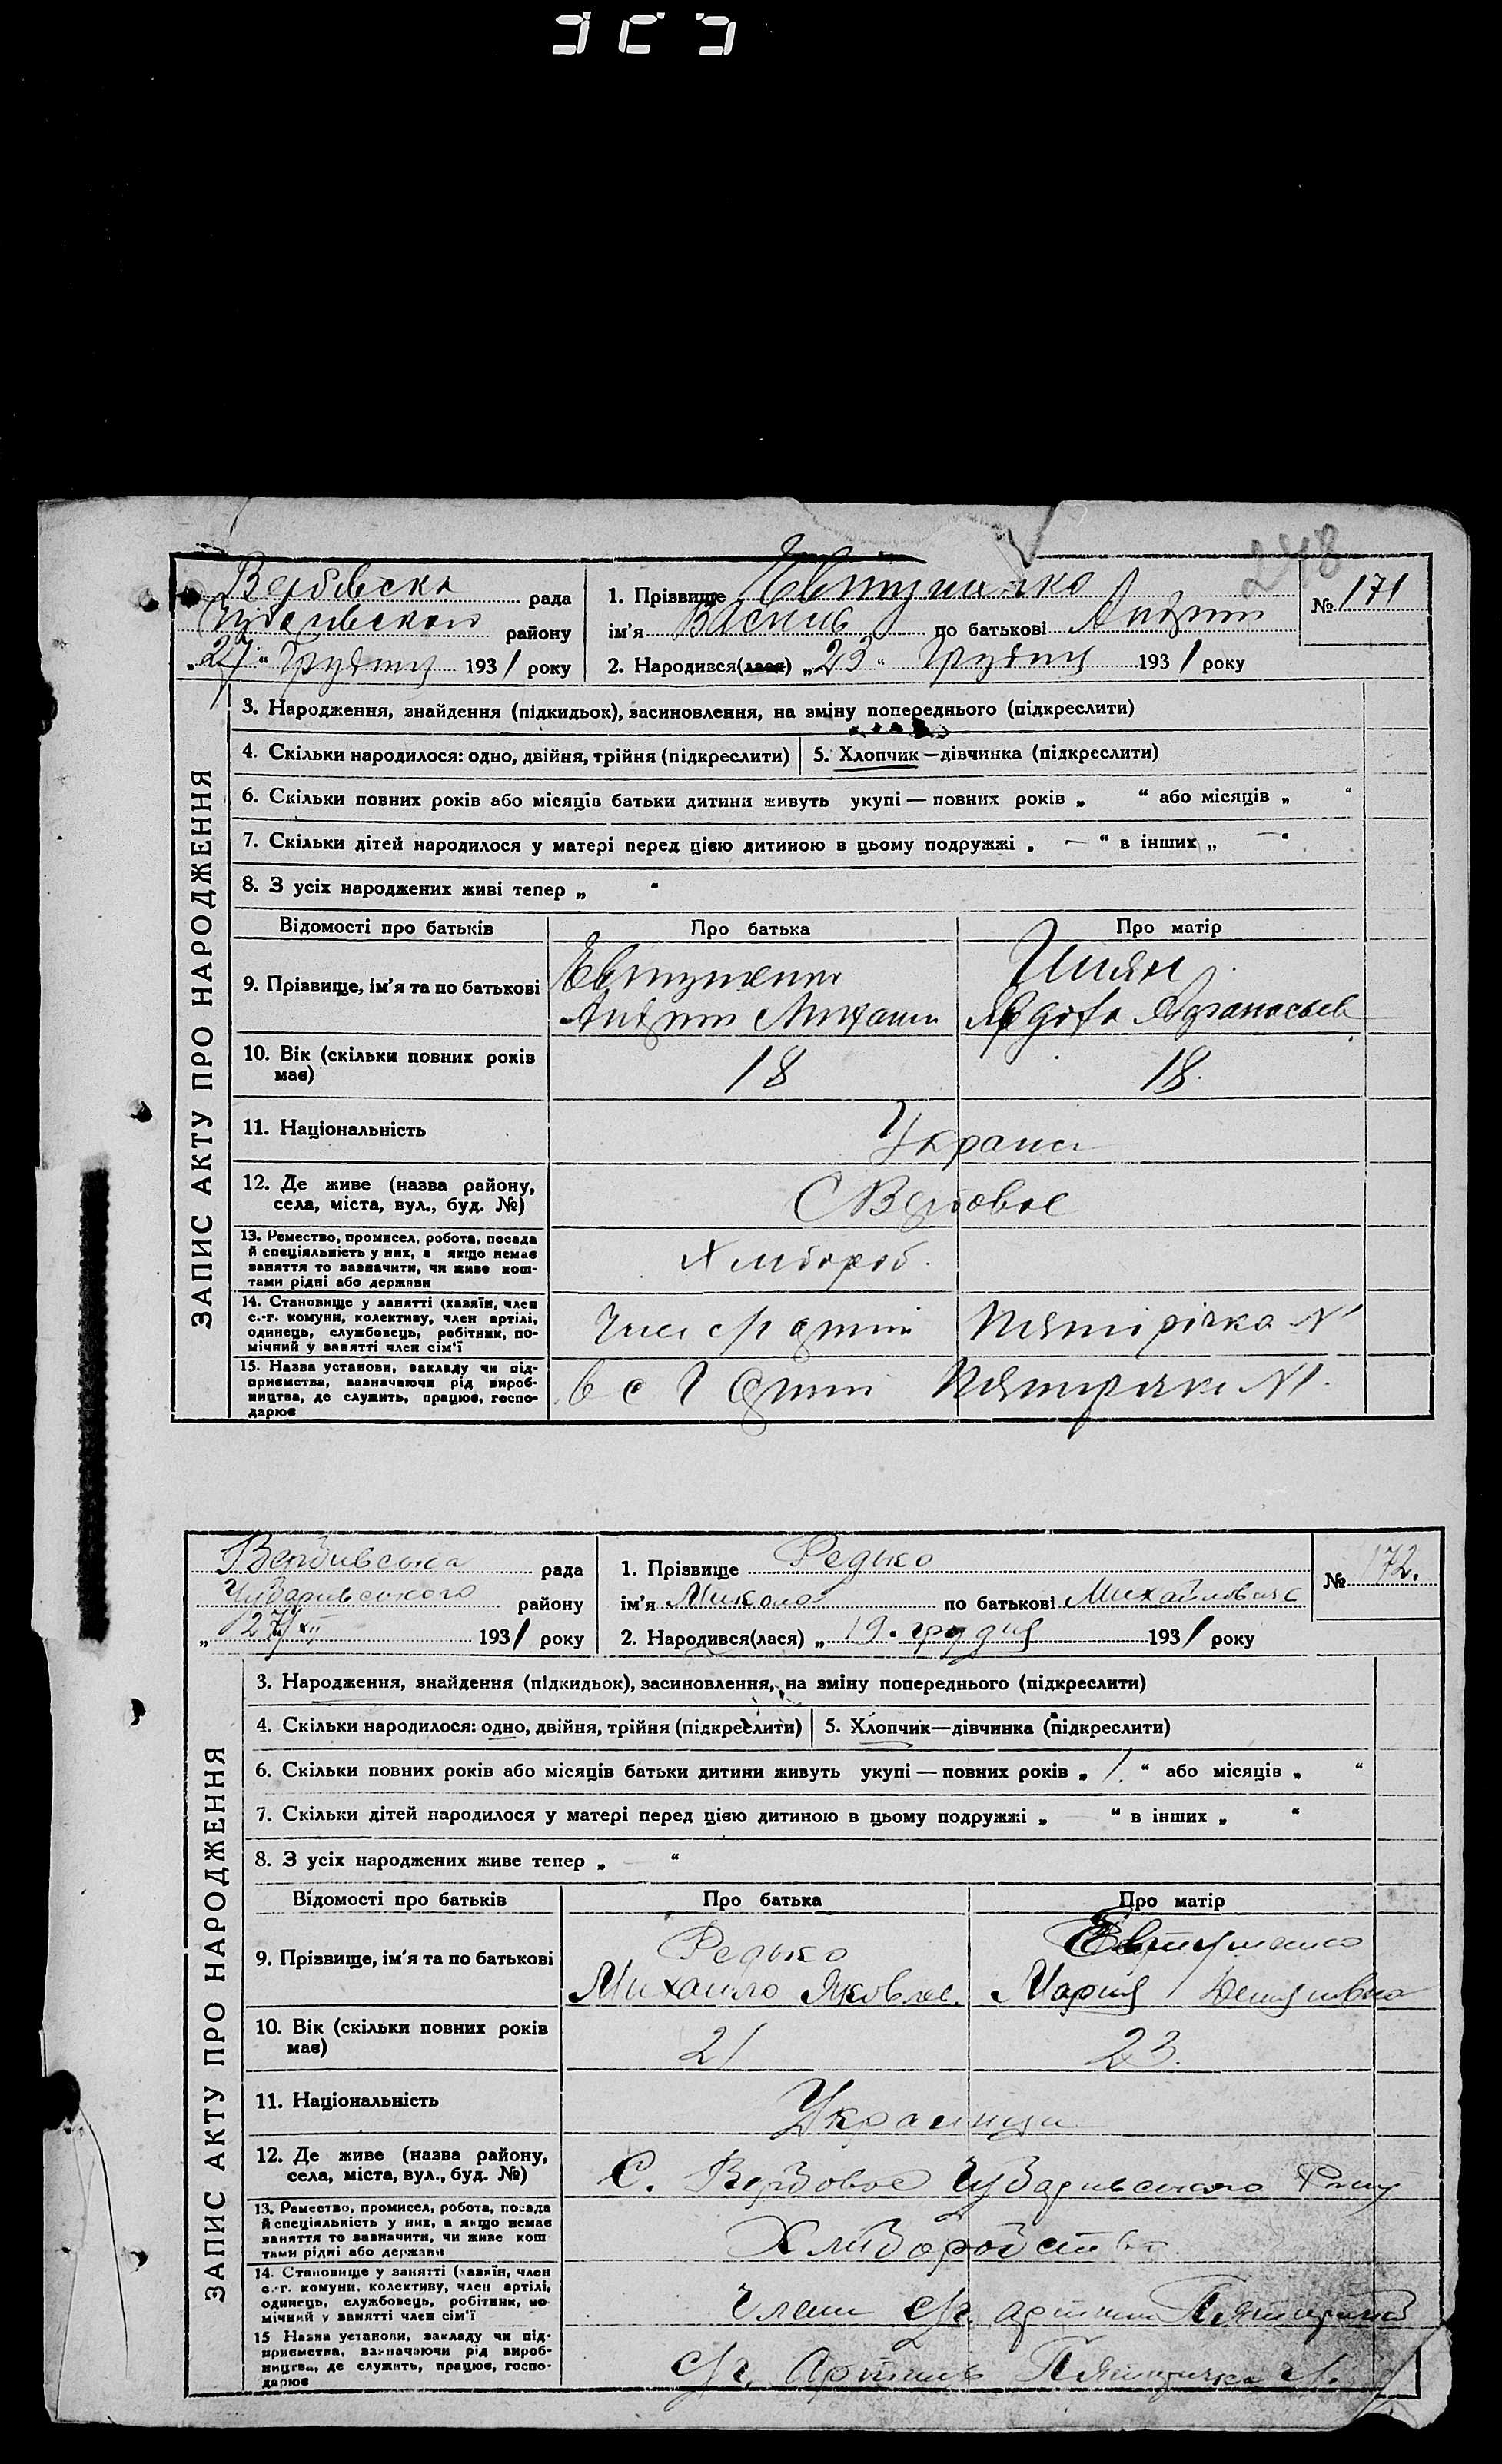 248
Вербівська рада
Чубарівського району
„27“ Грудня 1931 року
1. Прізвище Євтушенко
ім'я Василь по батькові Андрій
2. Народився(лася) „23“ Грудня 1931 року
№ 171
ЗАПИС АКТУ ПРО НАРОДЖЕННЯ
3. Народження, знайдення (підкидьок), засиновлення, на зміну попереднього (підкреслити)
4. Скільки народилося: одно, двійня, трійня (підкреслити) 5. Хлопчик—дівчинка (підкреслити)
6. Скільки повних років або місяців батьки дитини живуть укупі — повних років „ “ або місяців „ “
7. Скільки дітей народилося у матері перед цією дитиною в цьому подружжі „ — “ в інших „ — “
8. З усіх народжених живі тепер „ “
Відомості про батьків Про батька Про матір
9. Прізвище, ім'я та по батькові
Євтушенко
Андрій Михайл
Шиян
10. Вік (скільки повних років
має)
18 18.
11. Національність
Украінці
12. Де живе (назва району,
села, міста, вул., буд. №)
С Вербовое
13. Ремество, промисел, робота, посада
й спеціяльність у них, а якщо немає
заняття то зазначити, чи живе кош-
тами рідні або держави
Хлібороб.
14. Становище у занятті (хазяїн, член
с.-г. комуни, колективу, член артілі,
одинець, службовець, робітник, по-
мічний у занятті член сім'ї
Член с/г артілі Пятирічка №1
15. Назва установи, закладу чи під-
приємства, зазначаючи рід вироб-
ництва, де служить, працює, госпо-
дарює
в с г артілі Пятирічка №1.
Вербивська рада
Чубаривського району
„27/XII 1931 року
1. Прізвище Редько
ім'я Микола по батькові Михайлович
2. Народився(лася) „19. грудня 1931 року
№ 172.
ЗАПИС АКТУ ПРО НАРОДЖЕННЯ
3. Народження, знайдення (підкидьок), засиновлення, на зміну попереднього (підкреслити)
4. Скільки народилося: одно, двійня, трійня (підкреслити) 5. Хлопчик—дівчинка (підкреслити)
6. Скільки повних років або місяців батьки дитини живуть укупі — повних років „ 1. “ або місяців „ “
7. Скільки дітей народилося у матері перед цією дитиною в цьому подружжі „ — “ в інших „ “
8. З усіх народжених живе тепер „ — “
Відомості про батьків Про батька Про матір
9. Прізвище, ім'я та по батькові
Редько
Михаило Яковлев.
Евтушенко
Мария Демяновна
10. Вік (скільки повних років
має)
21 23.
11. Національність
Украинци
12. Де живе (назва району,
села, міста, вул., буд. №)
С. Вербовое Чубаривського Р-ну
13. Ремество, промисел, робота, посада
й спеціяльність у них, а якщо немає
заняття то зазначити, чи живе кош-
тами рідні або держави
Хлиборобство
14. Становище у занятті (хазяїн, член
с.-г. комуни, колективу, член артілі,
одинець, службовець, робітник, по-
мічний у занятті член сім'ї
Члени с/г. артили Пятиричка
15 Назва установи, закладу чи під-
приємства, зазначаючи рід вироб-
ництва, де служить, працює, госпо-
дарює
с/г. Артиль Пятиричка